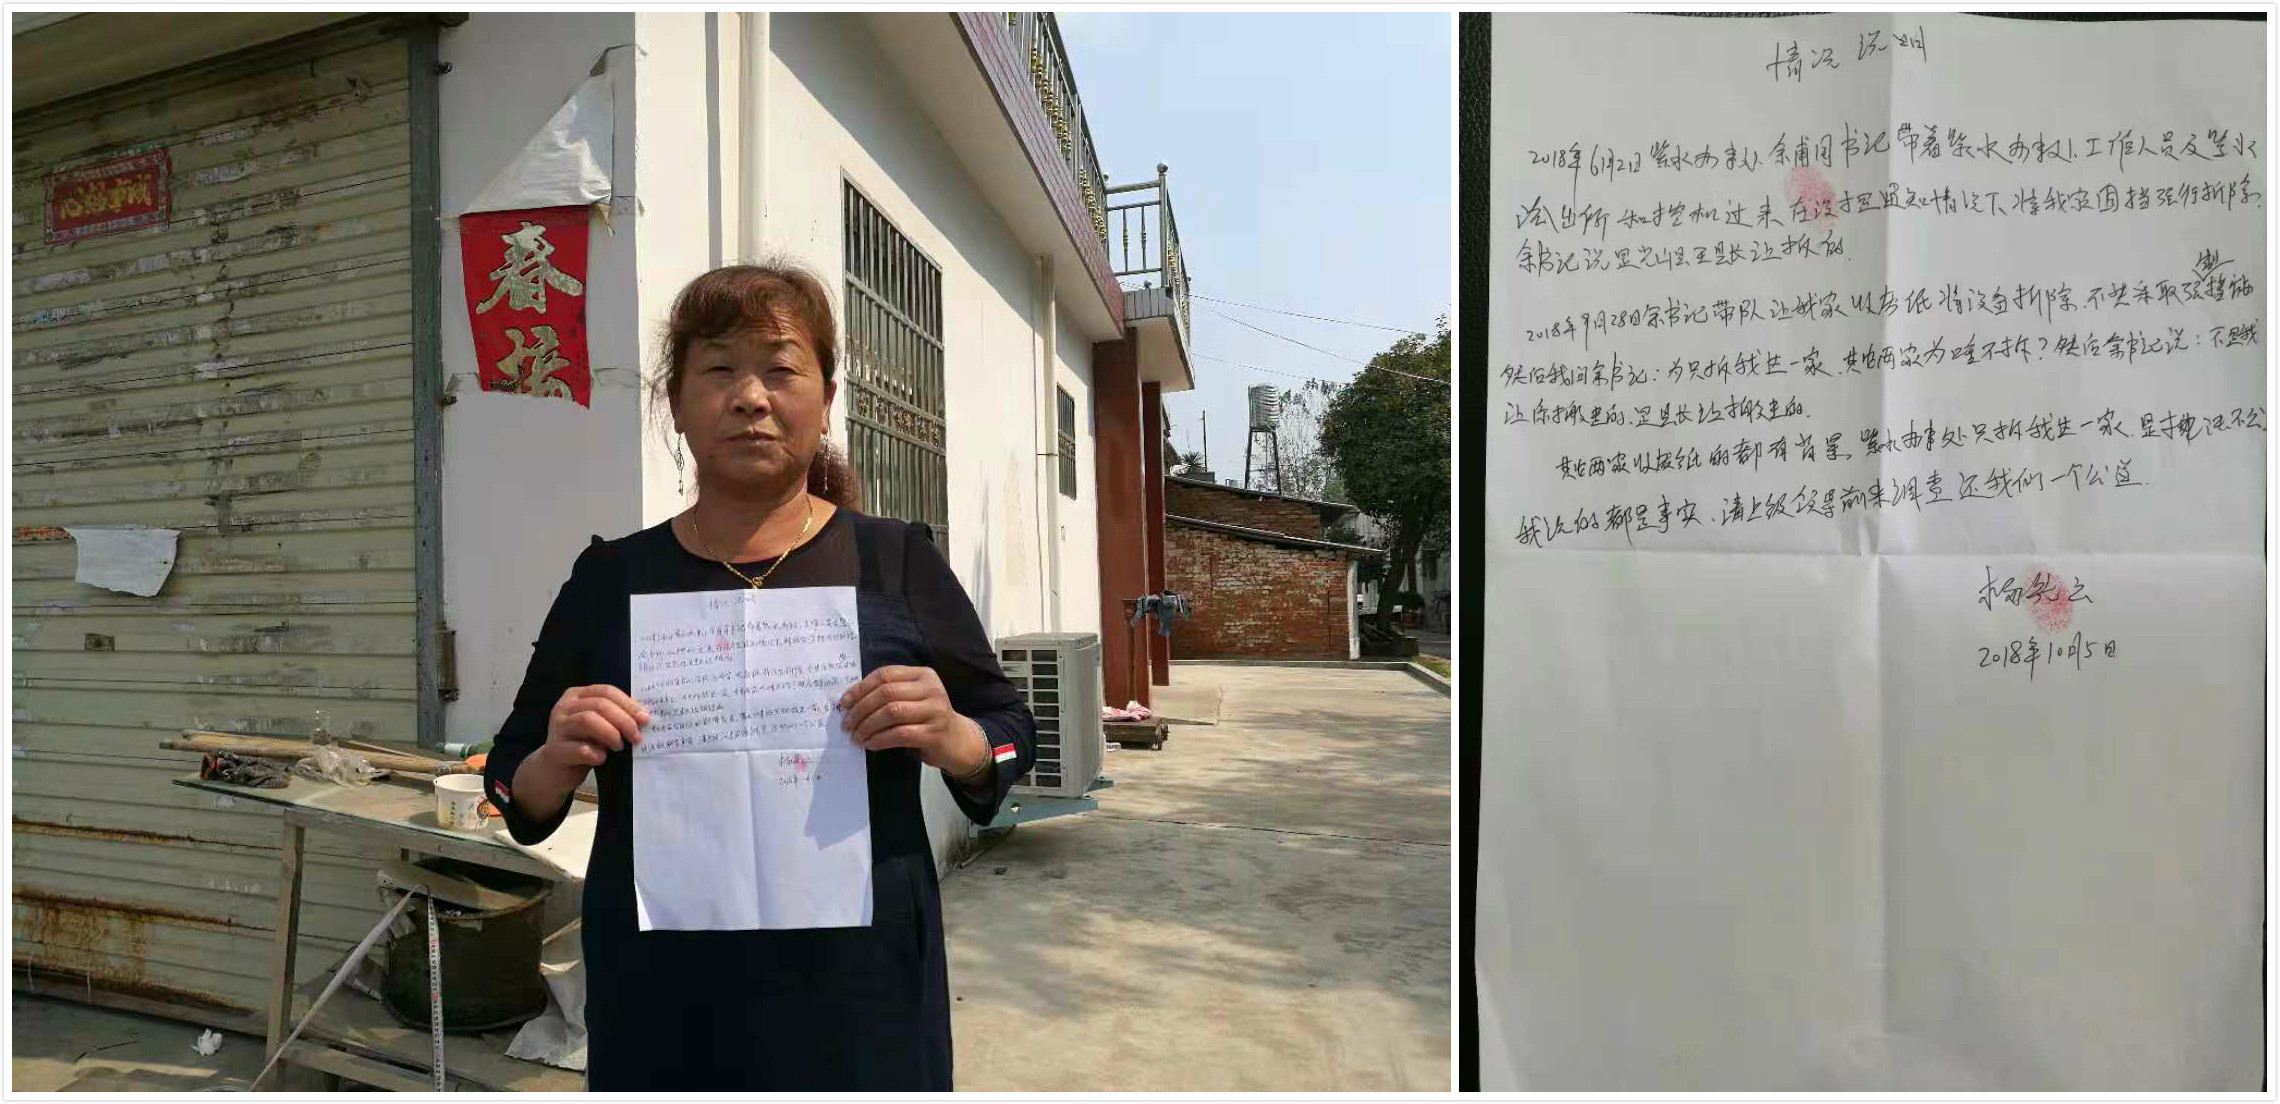 诚事话心
春
情况说明
2018年6月2日紫水办事处余甫国书记带着紫水办事处工作人员及紫水
派出所和挖机过来在没接通知情况下将我家围挡强行拆除.
余书记说是光山县王县长让拆的.
2018年9月28日余书记带队让我家收废纸将设备拆除.不然采取强制措施
然后我问余书记:为只拆我这一家.其它两家为啥不拆?然后余书记说:不是我
让你搬走的.是县长让搬走的.
其它两家收废纸的都有背景.紫水办事处只拆我这一家.是执法不公.
我说的都是事实.请上级领导前来调查还我们一个公道.
杨先云
2018年10月5日